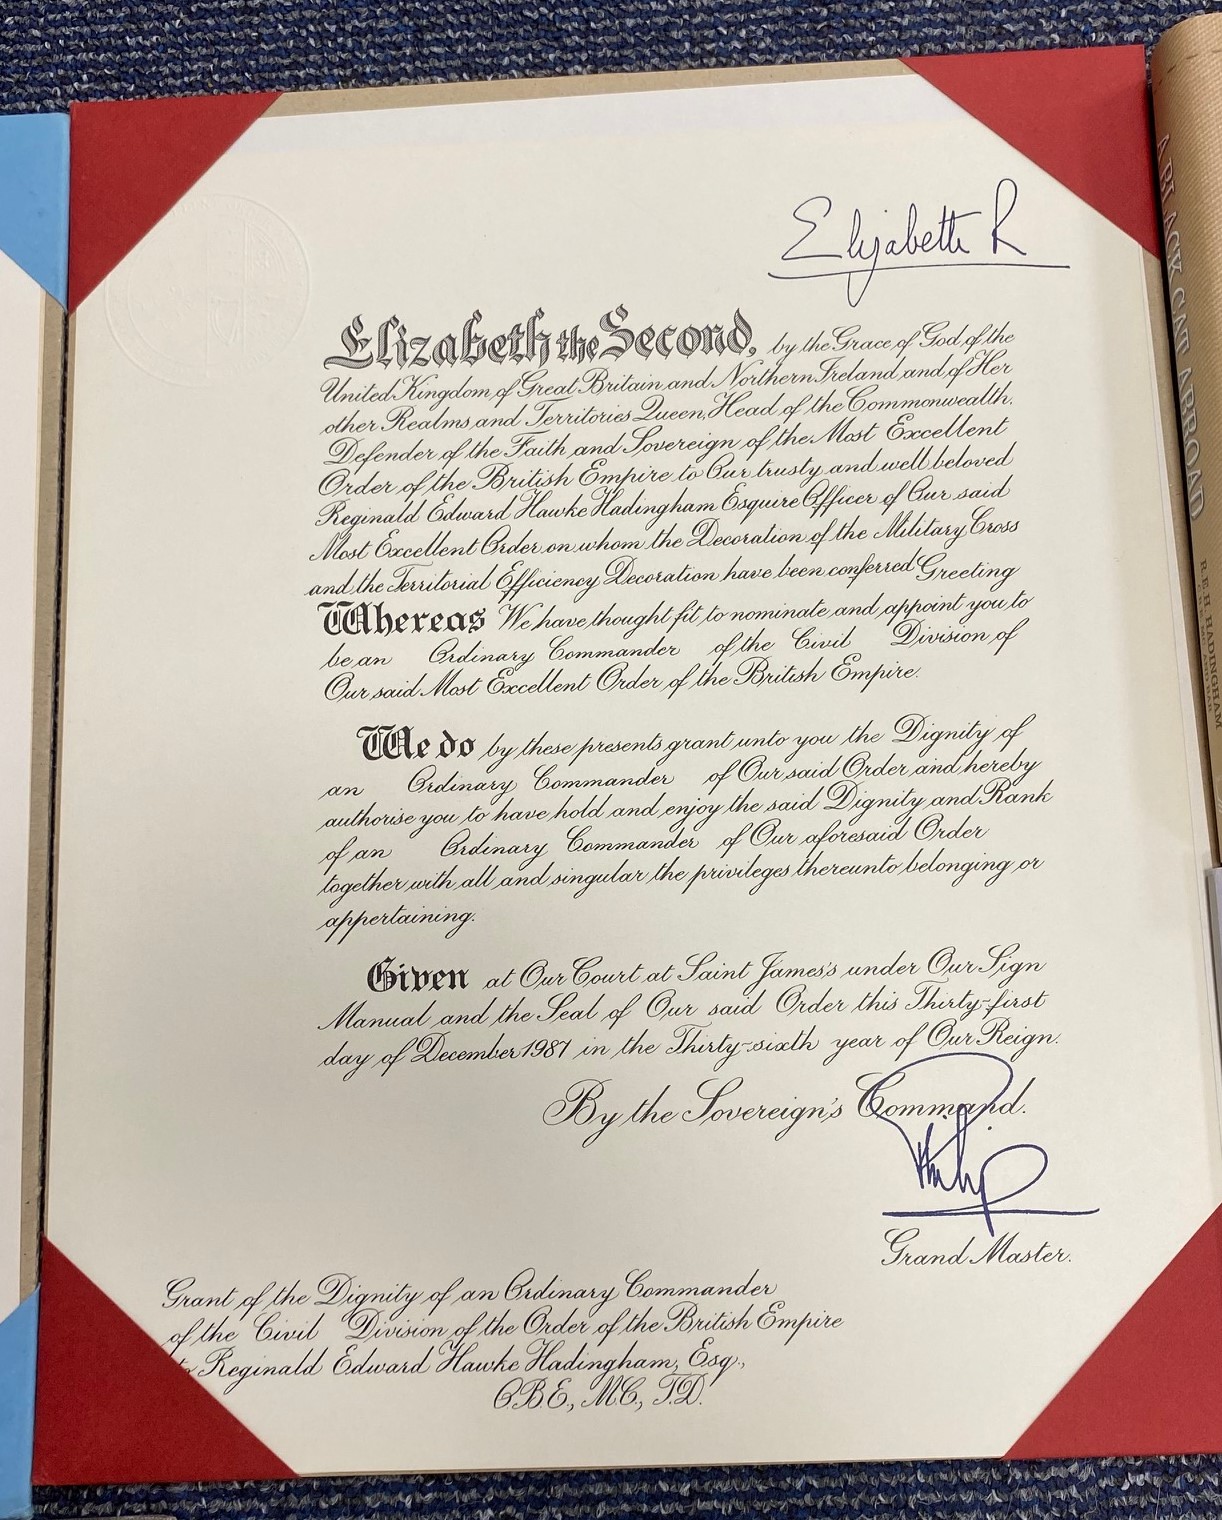 Elizabeth R
Elizabeth the Second, by the Grace of God of the
United Kingdom of Great Britain and Northern Ireland and of Her
other Realms and Territories Queen, Head of the Commonwealth,
Defender of the Faith and Sovereign of the Most Excellent
Order of the British Empire to Our trusty and well beloved
Reginald Edward Hawke Hadingham Esquire Officer of Our said
Most Excellent Order on whom the Decoration of the Military Cross
and the Territorial Efficiency Decoration have been conferred Greeting
Whereas We have thought fit to nominate and appoint you to
be an Ordinary Commander of the Civil Division of
Our said Most Excellent Order of the British Empire.
We do by these presents grant unto you the Dignity of
an Ordinary Commander of Our said Order and hereby
authorise you to have hold and enjoy the said Dignity and Rank
of an Ordinary Commander of Our aforesaid Order
together with all and singular the privileges thereunto belonging or
appertaining.
Given at Our Court at Saint James's under Our Sign
Manual and the Seal of Our said Order this Thirty-first
day of December 1987 in the Thirty-sixth year of Our Reign.
By the Sovereign's Command.
Philip
Grand Master.
Grant of the Dignity of an Ordinary Commander
of the Civil Division of the Order of the British Empire
to Reginald Edward Hawke Hadingham, Esq.,
O.B.E., M.C., T.D.
A BLACK CAT ABROAD
R.E.H. HADINGHAM